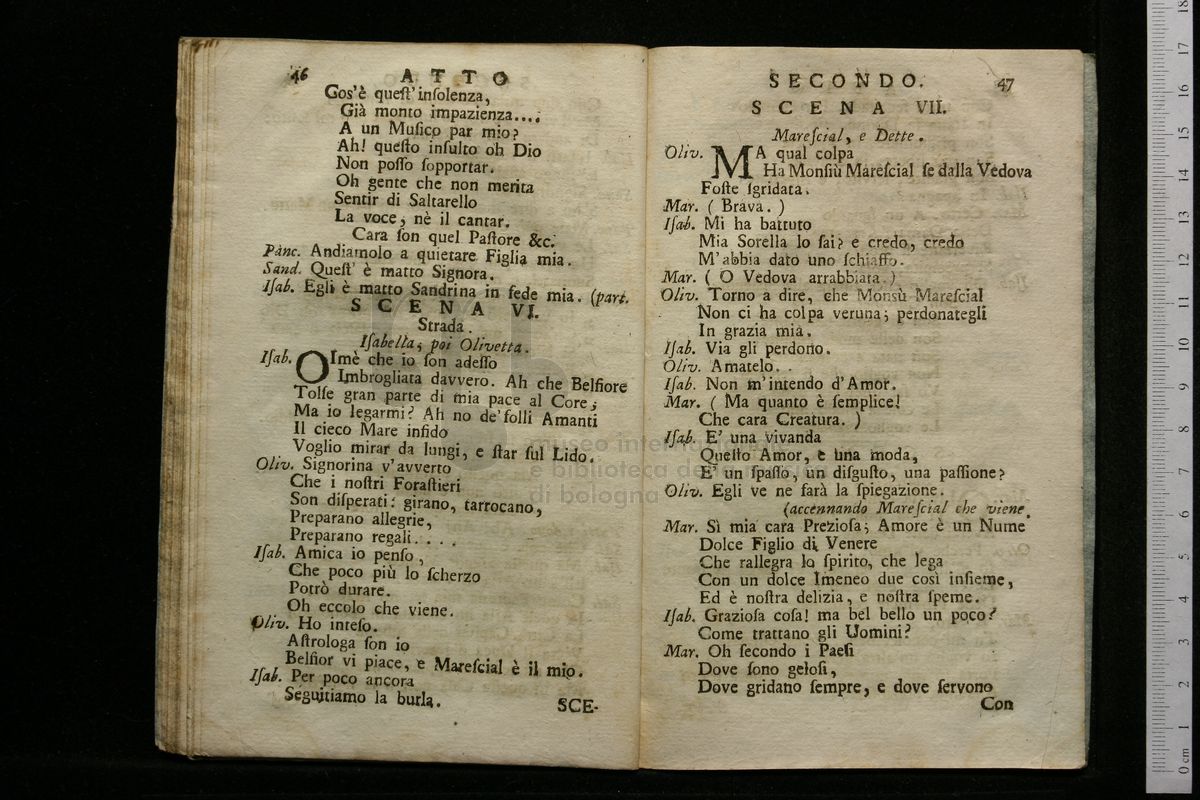 46 ATTO
Cos'è quest'insolenza,
Già monto impazienza....
A un Musico par mio?
Ah! questo insulto oh Dio
Non posso sopportar.
Oh gente che non merita
Sentir di Saltarello
La voce, nè il cantar.
Cara son quel Pastore &c.
Panc. Andiamolo a quietare Figlia mia.
Sand. Quest' è matto Signora.
Isab. Egli è matto Sandrina in fede mia. (part.
SCENA VI.
Strada.
Isabella, poi Olivetta.
Isab. OImè che io son adesso
Imbrogliata davvero. Ah che Belfiore
Tolse gran parte di mia pace al Core;
Ma io legarmi? Ah no de'folli Amanti
Il cieco Mare infido
Voglio mirar da lungi, e star sul Lido.
Oliv. Signorina v'avverto
Che i nostri Forastieri
Son disperati: girano, tarrocano,
Preparano allegrie,
Preparano regali. . . .
Isab. Amica io penso,
Che poco più lo scherzo
Potrò durare.
Oh eccolo che viene.
Oliv. Ho inteso.
Astrologa son io
Belfior vi piace, e Marescial è il mio.
Isab. Per poco ancora
Seguitiamo la burla.
SCE-
SECONDO. 47
SCENA VII.
Marescial, e Dette.
Oliv. MA qual colpa
Ha Monsiù Marescial se dalla Vedova
Foste sgridata.
Mar. ( Brava. )
Isab. Mi ha battuto
Mia Sorella lo sai? e credo, credo
M'abbia dato uno schiaffo.
Mar. ( O Vedova arrabbiata. )
Oliv. Torno a dire, che Monsù Marescial
Non ci ha colpa veruna; perdonategli
In grazia mia.
Isab. Via gli perdono.
Oliv. Amatelo.
Isab. Non m'intendo d'Amor.
Mar. ( Ma quanto è semplice!
Che cara Creatura. )
Isab. E' una vivanda
Questo Amor, è una moda,
E' un spasso, un disgusto, una passione?
Oliv. Egli ve ne farà la spiegazione.
(accennando Marescial che viene.
Mar. Sì mia cara Preziosa; Amore è un Nume
Dolce Figlio di Venere
Che rallegra lo spirito, che lega
Con un dolce Imeneo due così insieme,
Ed è nostra delizia, e nostra speme.
Isab. Graziosa cosa! ma bel bello un poco?
Come trattano gli Uomini?
Mar. Oh secondo i Paesi
Dove sono gelosi,
Dove gridano sempre, e dove servono
Con
museo internazionale
e biblioteca della musica
di bologna